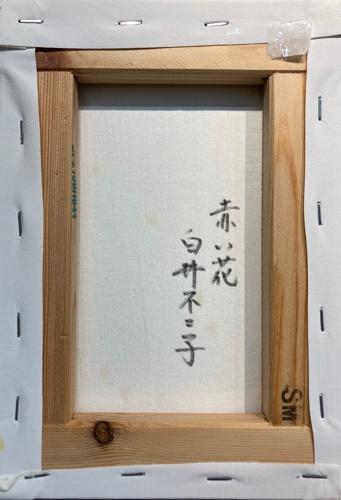 赤い花
白井不二子
SM